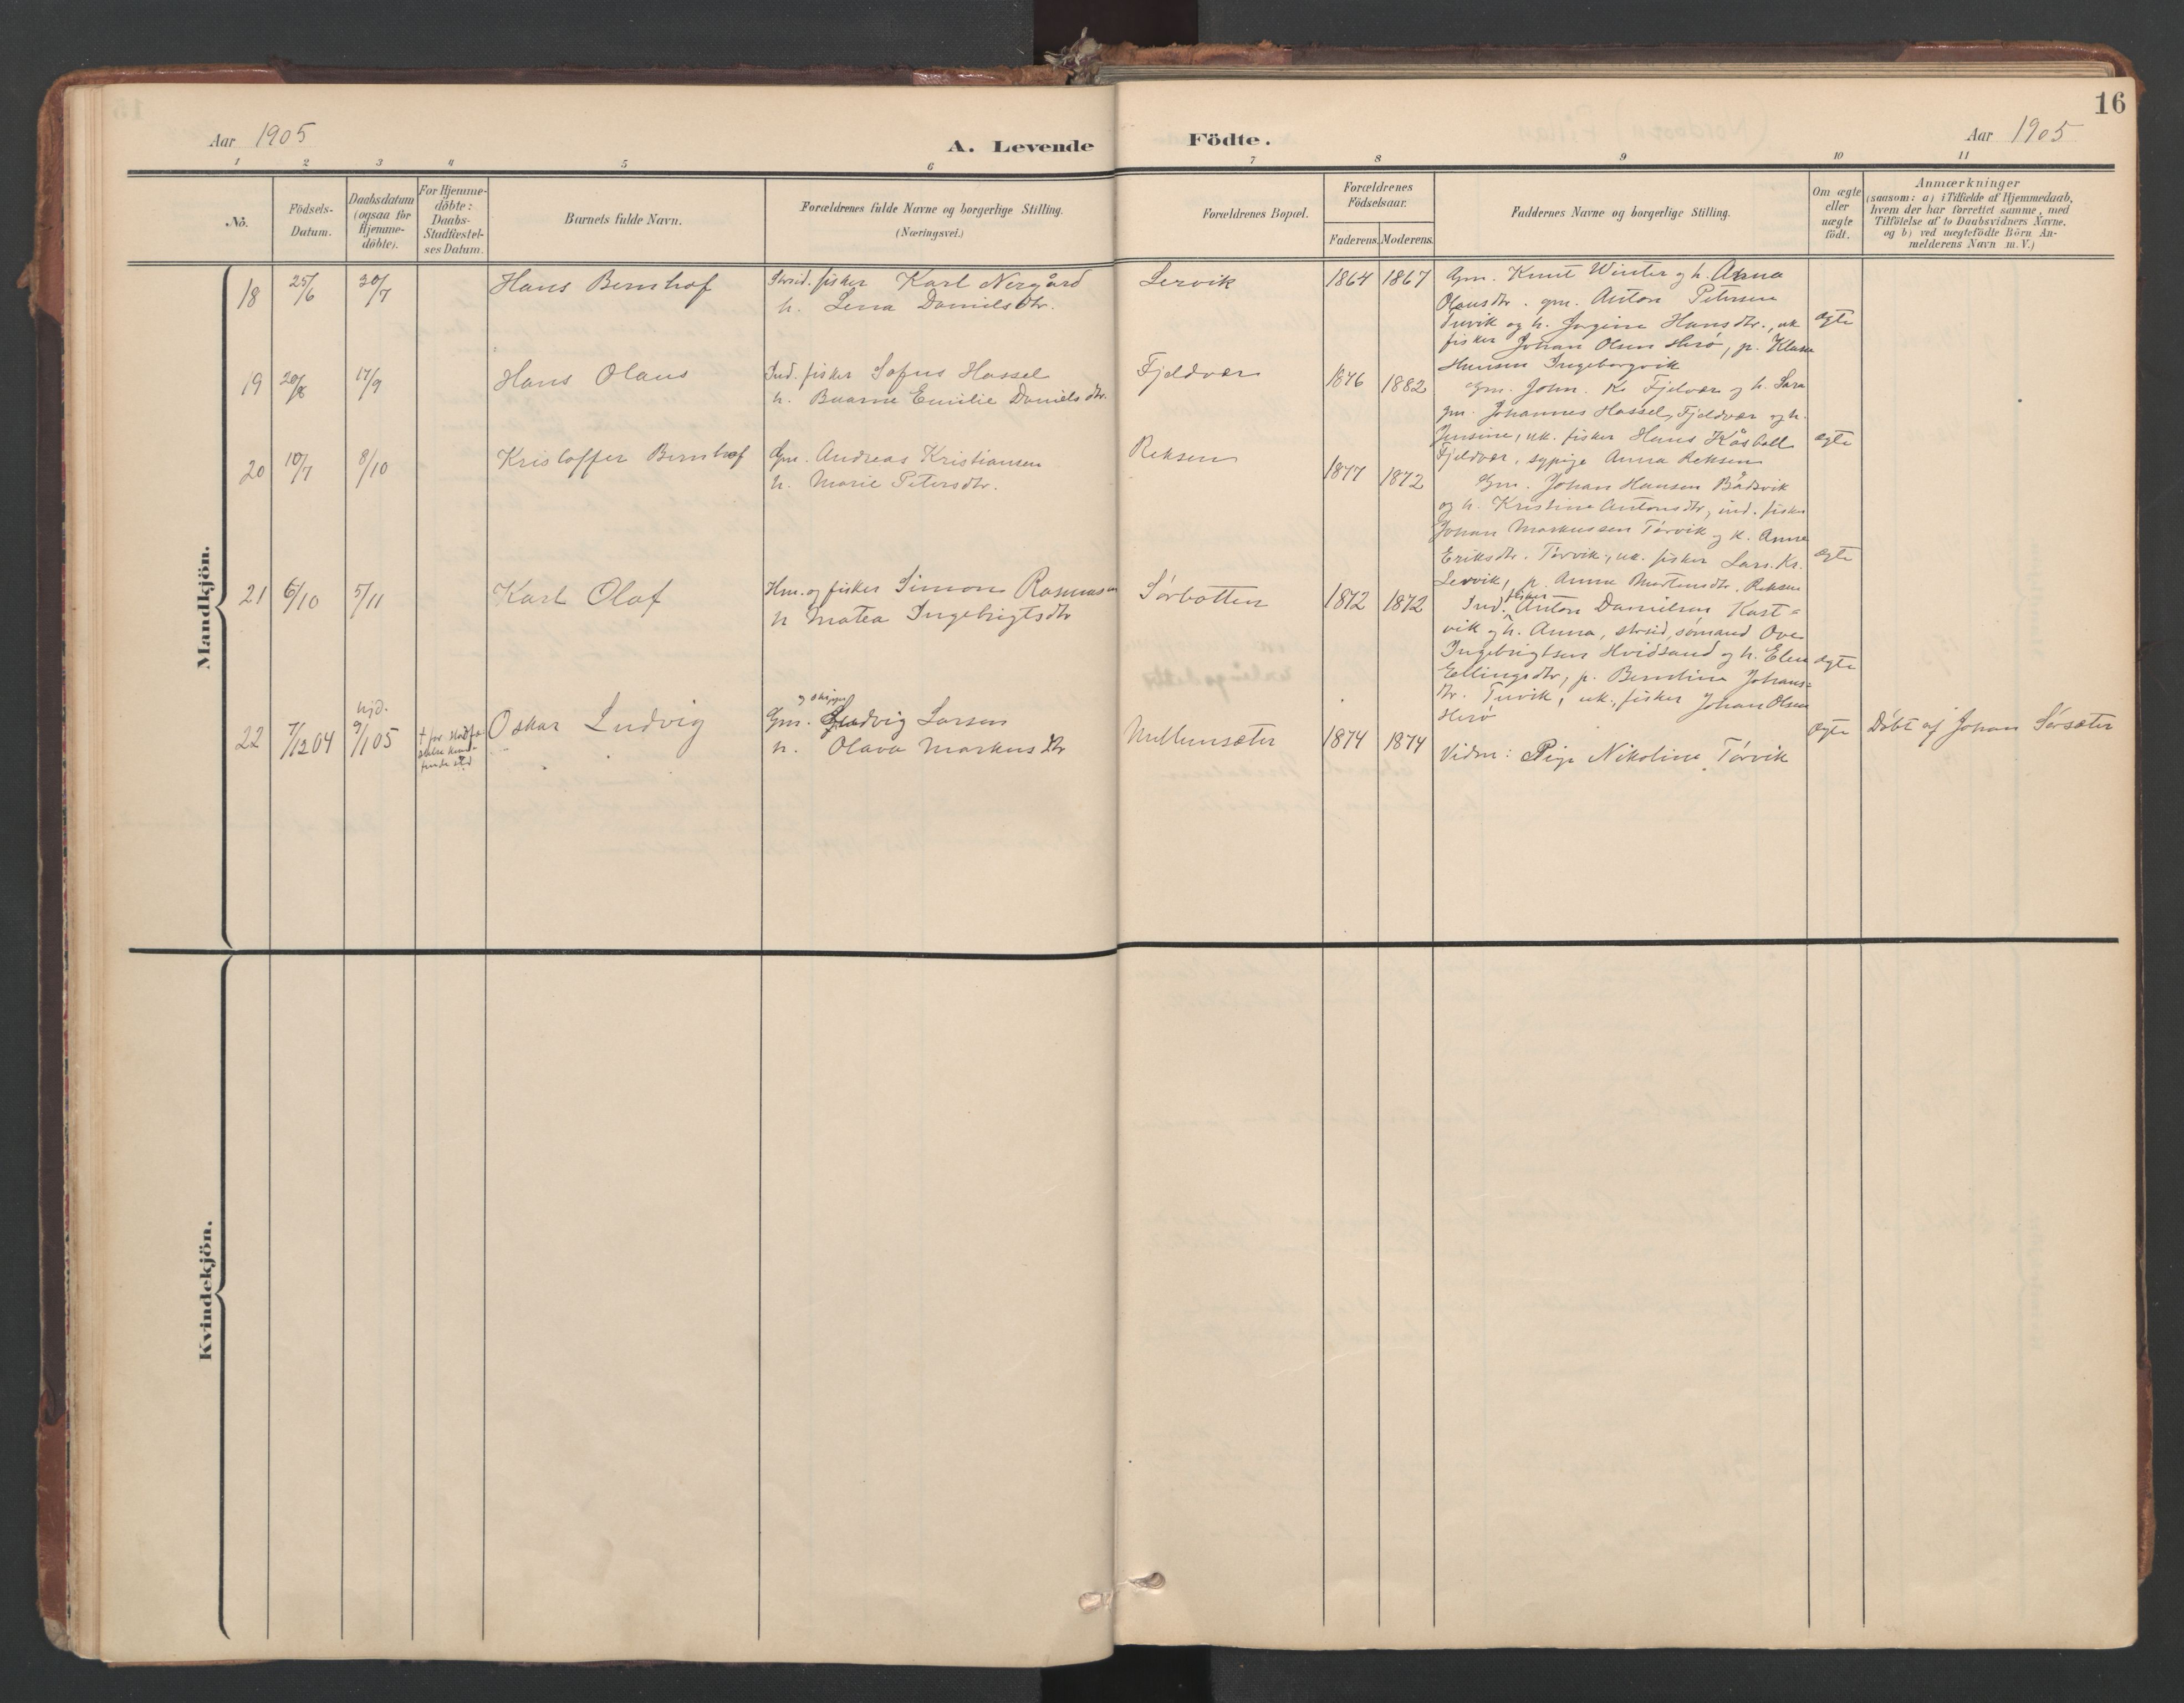 16
Aar 1905
A. Levende Födte.
Aar 1905
1 2 3 4 5 6 7 8 9 10 11
No.
Födsels-
Datum.
Daabsdatum
(ogsaa for
Hjemme-
döbte).
For Hjemme-
döbte:
Daabs-
Stadfæstel-
ses Datum.
Barnets fulde Navn.
Forældrenes fulde Navne og borgerlige Stilling.
(Næringsvei.)
Forældrenes Bopæl.
Forældrenes
Födselsaar.
Faderens. Moderens.
Faddernes Navne og borgerlige Stilling.
Om ægte
eller
uægte
födt.
Anmærkninger
(saasom: a) i Tilfælde af Hjemmedaab,
hvem der har forrettet samme, med
Tilföielse af to Daabsvidners Navne,
og b) ved uægtefödte Börn An-
melderens Navn m. V.)
Mandkjön.
18 25/6 30/7 Hans Bernhof
fisker Karl Nergård
h. Lena Danielsdtr.
Lervik 1864 1867
Gm. Knut Winter og h. Anna
Olausdtr. gm. Anton Petersen
Tuvik og h. Jørgine Hansdtr., uk.
fisker Johan Olsen Herø, p. Klara
Hansen Ingeborgvik
ægte
19 20/8 17/9 Hans Olaus
Ind. fisker Sofus Hassel
h. Emilie Daniels dtr.
Fjeldvær 1876 1882
Gm. John. K. Fjeldvær og h. Sara
gm. Johannes Hassel, Fjeldvær og h.
Jensine, uk. fisker Hans Kåsball
Fjeldvær, sypige Anna Reksen
ægte
20 10/7 8/10 Kristoffer Bernhof
Gm. Andreas Kristiansen
h. Marie Petersdtr.
Reksen 1877 1872
Gm. Johan Hansen Bådsvik
og h. Kristine Antonsdtr, ind. fisker
Johan Markussen Tørvik og h. Anna
Eriksdtr. Tørvik, uk. fisker Lars. Kr.
Lervik, p. Anna Martensdtr. Reksen
ægte
21 6/10 5/11 Karl Olaf
Hm. og fisker Simon Rasmussen
h Matea Ingebrigtsdtr
Sørbotten 1872 1872
Ind. fisker Anton Danielsen Kast-
vik og h. Anna, strsid. sømand Ove
Ingebrigtsen Hvidsand og h. Elen
Ellingsdtr, p. Berntine Johans-
dtr. Tuvik, uk. fisker Johan Olsen
Herø
ægte
22 7/12 04 hjd. 9/1 05
† før stadfæ-
stelse kunde
finde sted
Oskar Ludvig
og skipper
Gm. Ludvig Larsen
h. Olava Markusdtr
Mellemsæter 1874 1874
Vidn: Pige Nikoline Tørvik
ægte
Døbt af Johan Sørsæter
Kvindekjön.